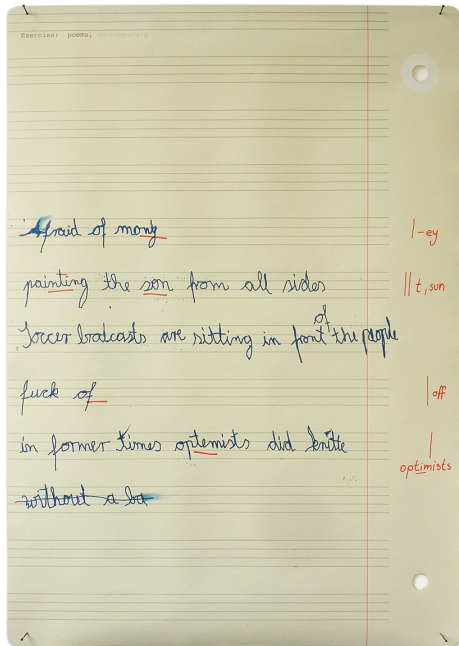 Exercise: poems, Contemporary
afraid of mony |-ey
painting the son from all sides || t, sun
Soccer brodcasts are sitting in front of the people
fuck of | off
in former times optemists did knitte | optimists
without a ba